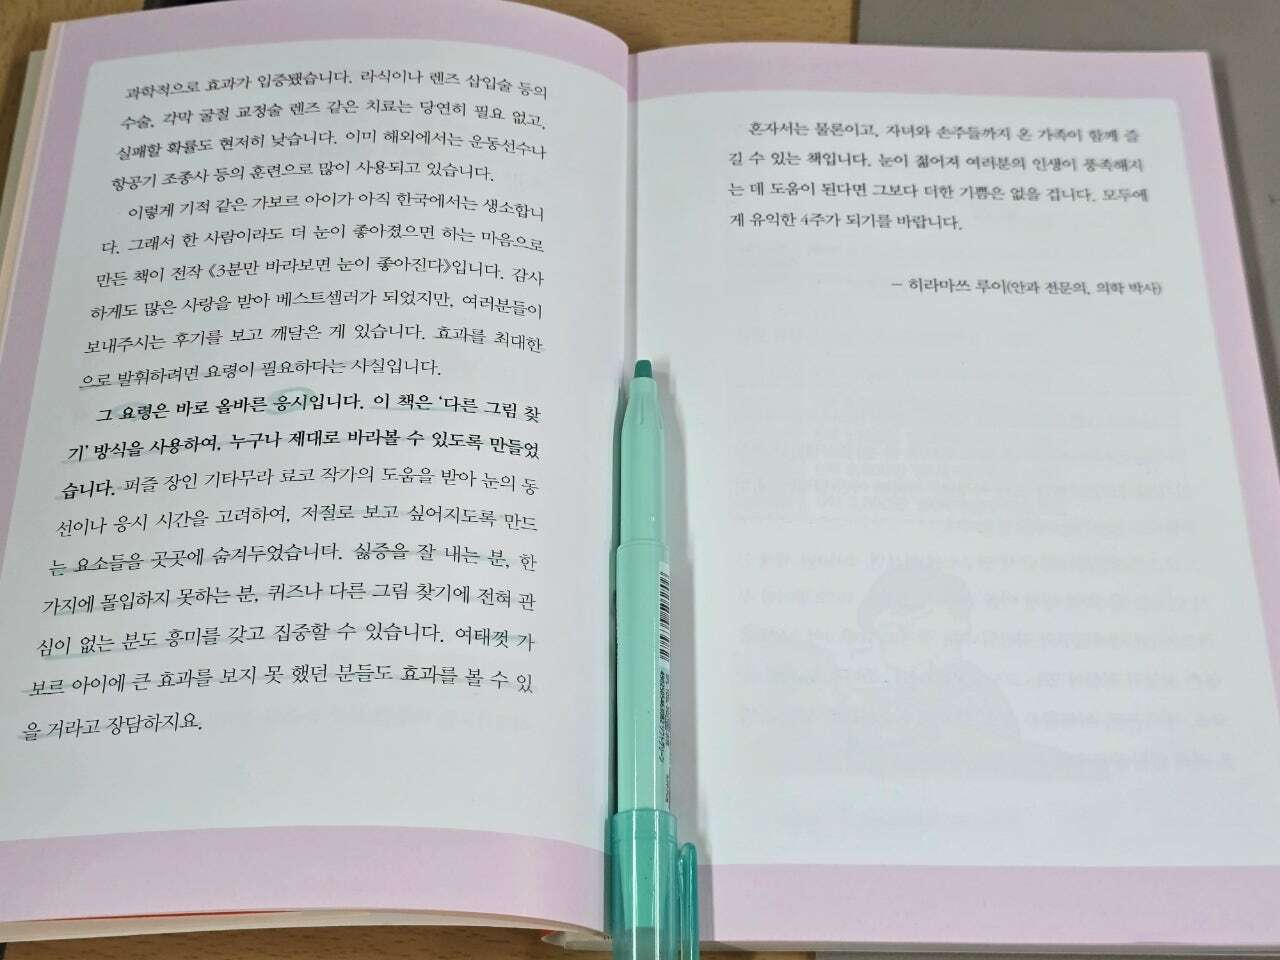 과학적으로 효과가 입증됐습니다. 라식이나 렌즈 삽입술 등의
수술, 각막 굴절 교정술 렌즈 같은 치료는 당연히 필요 없고,
실패할 확률도 현저히 낮습니다. 이미 해외에서는 운동선수나
항공기 조종사 등의 훈련으로 많이 사용되고 있습니다.
이렇게 기적 같은 가보르 아이가 아직 한국에서는 생소합니
다. 그래서 한 사람이라도 더 눈이 좋아졌으면 하는 마음으로
만든 책이 전작 《3분만 바라보면 눈이 좋아진다》입니다. 감사
하게도 많은 사랑을 받아 베스트셀러가 되었지만, 여러분들이
보내주시는 후기를 보고 깨달은 게 있습니다. 효과를 최대한
으로 발휘하려면 요령이 필요하다는 사실입니다.
그 요령은 바로 올바른 응시입니다. 이 책은 ‘다른 그림 찾
기’ 방식을 사용하여, 누구나 제대로 바라볼 수 있도록 만들었
습니다. 퍼즐 장인 기타무라 료코 작가의 도움을 받아 눈의 동
선이나 응시 시간을 고려하여, 저절로 보고 싶어지도록 만드
는 요소들을 곳곳에 숨겨두었습니다. 싫증을 잘 내는 분, 한
가지에 몰입하지 못하는 분, 퀴즈나 다른 그림 찾기에 전혀 관
심이 없는 분도 흥미를 갖고 집중할 수 있습니다. 여태껏 가
보르 아이에 큰 효과를 보지 못 했던 분들도 효과를 볼 수 있
을 거라고 장담하지요.
혼자서는 물론이고, 자녀와 손주들까지 온 가족이 함께 즐
길 수 있는 책입니다. 눈이 젊어져 여러분의 인생이 풍족해지
는 데 도움이 된다면 그보다 더한 기쁨은 없을 겁니다. 모두에
게 유익한 4주가 되기를 바랍니다.
– 히라마쓰 루이(안과 전문의, 의학 박사)